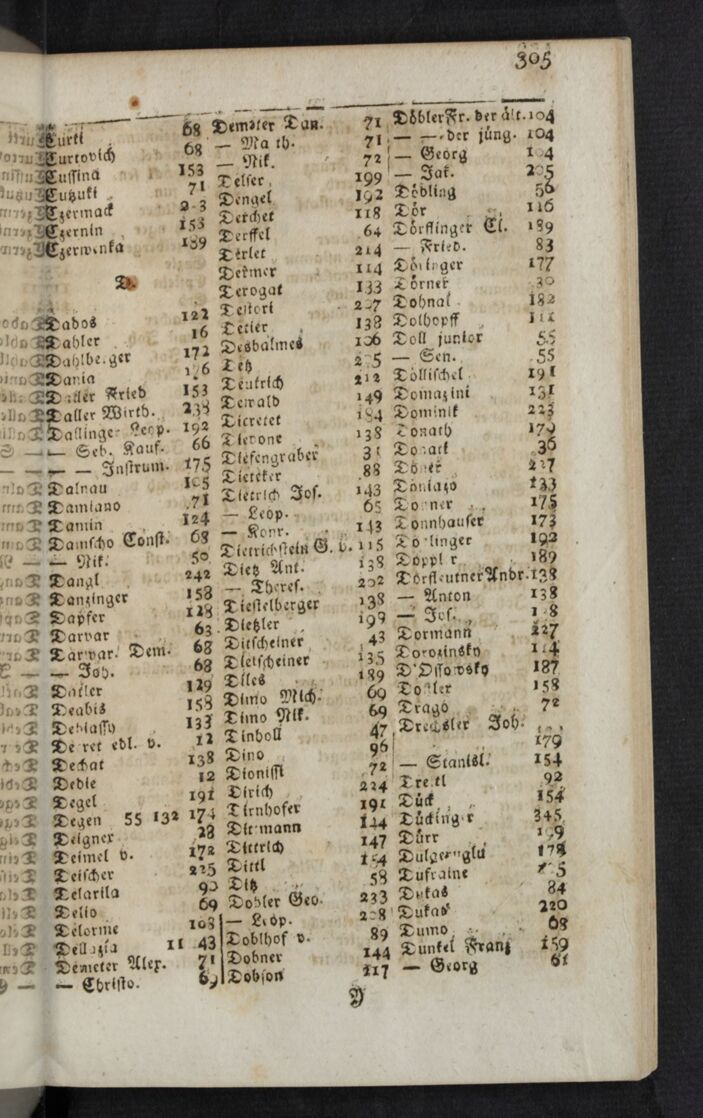 305
Curti 68
Curtovich 68
Cussina 153
Cutzuki 71
Czermack
Czernin 153
Czerwenka 189
D.
Dabos 122
Dahler 16
Dahlberger 172
Dania
Daller Fried 153
Daller Wirth. 238
Dallinger Leop. 192
— Seb. Kauf. 66
— — Instrum. 175
Dalnau 105
Damiano 71
Damin 124
Damscho Const. 68
— Nik. 50
Dangl 242
Danzinger 158
Dapfer 128
Darvar 63
Darvar Dem. 68
— Joh. 68
129
Deabis 158
133
edl. v. 12
Dechat 138
Dedie 12
Degel 191
Degen 55 132 174
Deigner 28
Deimel v. 172
Deischer 225
Delarila 90
Delio 69
Delorme 108
11 43
Demeter Alex. 71
— Christo. 69
Demeter Dan. 71
— Math. 71
— Nik. 72
Delser 199
Dengel 192
Derchet 118
Derffel 64
Derlet 214
Deimer 114
Derogat 133
Destori 207
Detler 138
Desbalmes 106
Detz
Deutrich 212
Dewald 149
Dicretet 184
138
Diefengraber
Dietcker 88
Dietrich Jos. 143
— Leop. 65
— Konr. 143
Dietrichstein G. v. 115
Dietz Ant. 138
— Theres. 202
Diestelberger 138
Dietzler 199
Ditscheiner 43
Dietscheiner 135
Diles 189
Dimo Mich. 69
Dimo Nik. 69
Dinboll 47
Dino 96
Dionissi 72
Dirich 224
Dirnhofer 191
Dirmann 144
Dittrich 147
Dittl 154
Ditz 58
Dobler Geo. 233
— Leop. 208
Doblhof v. 89
Dobner 144
Dobson 217
Döbler Fr. der ält. 104
— — der jüng. 104
— Georg 104
— Jak. 205
Döbling 56
Dör 116
Dörflinger Cl. 189
— Fried. 83
177
Dörner 30
Dohnal 182
Dolhopff
Doll junior 55
— Sen. 55
Döllischel 191
Domazini 131
Dominik 223
Donath 179
36
227
133
175
Donnhauser 173
192
189
Dorfleutner Andr. 138
— Anton 138
— Jos.
Dormann 227
Dorozinsky 114
D'Ossowsky 187
158
Drago 72
Drechsler Joh.
179
— Stanisl. 154
92
Dück 154
Dückinger 345
Dürr 199
178
Dufraine
Dukas 84
Dukas 220
Dumo 68
Dunkel Franz 159
— Georg 61
Y